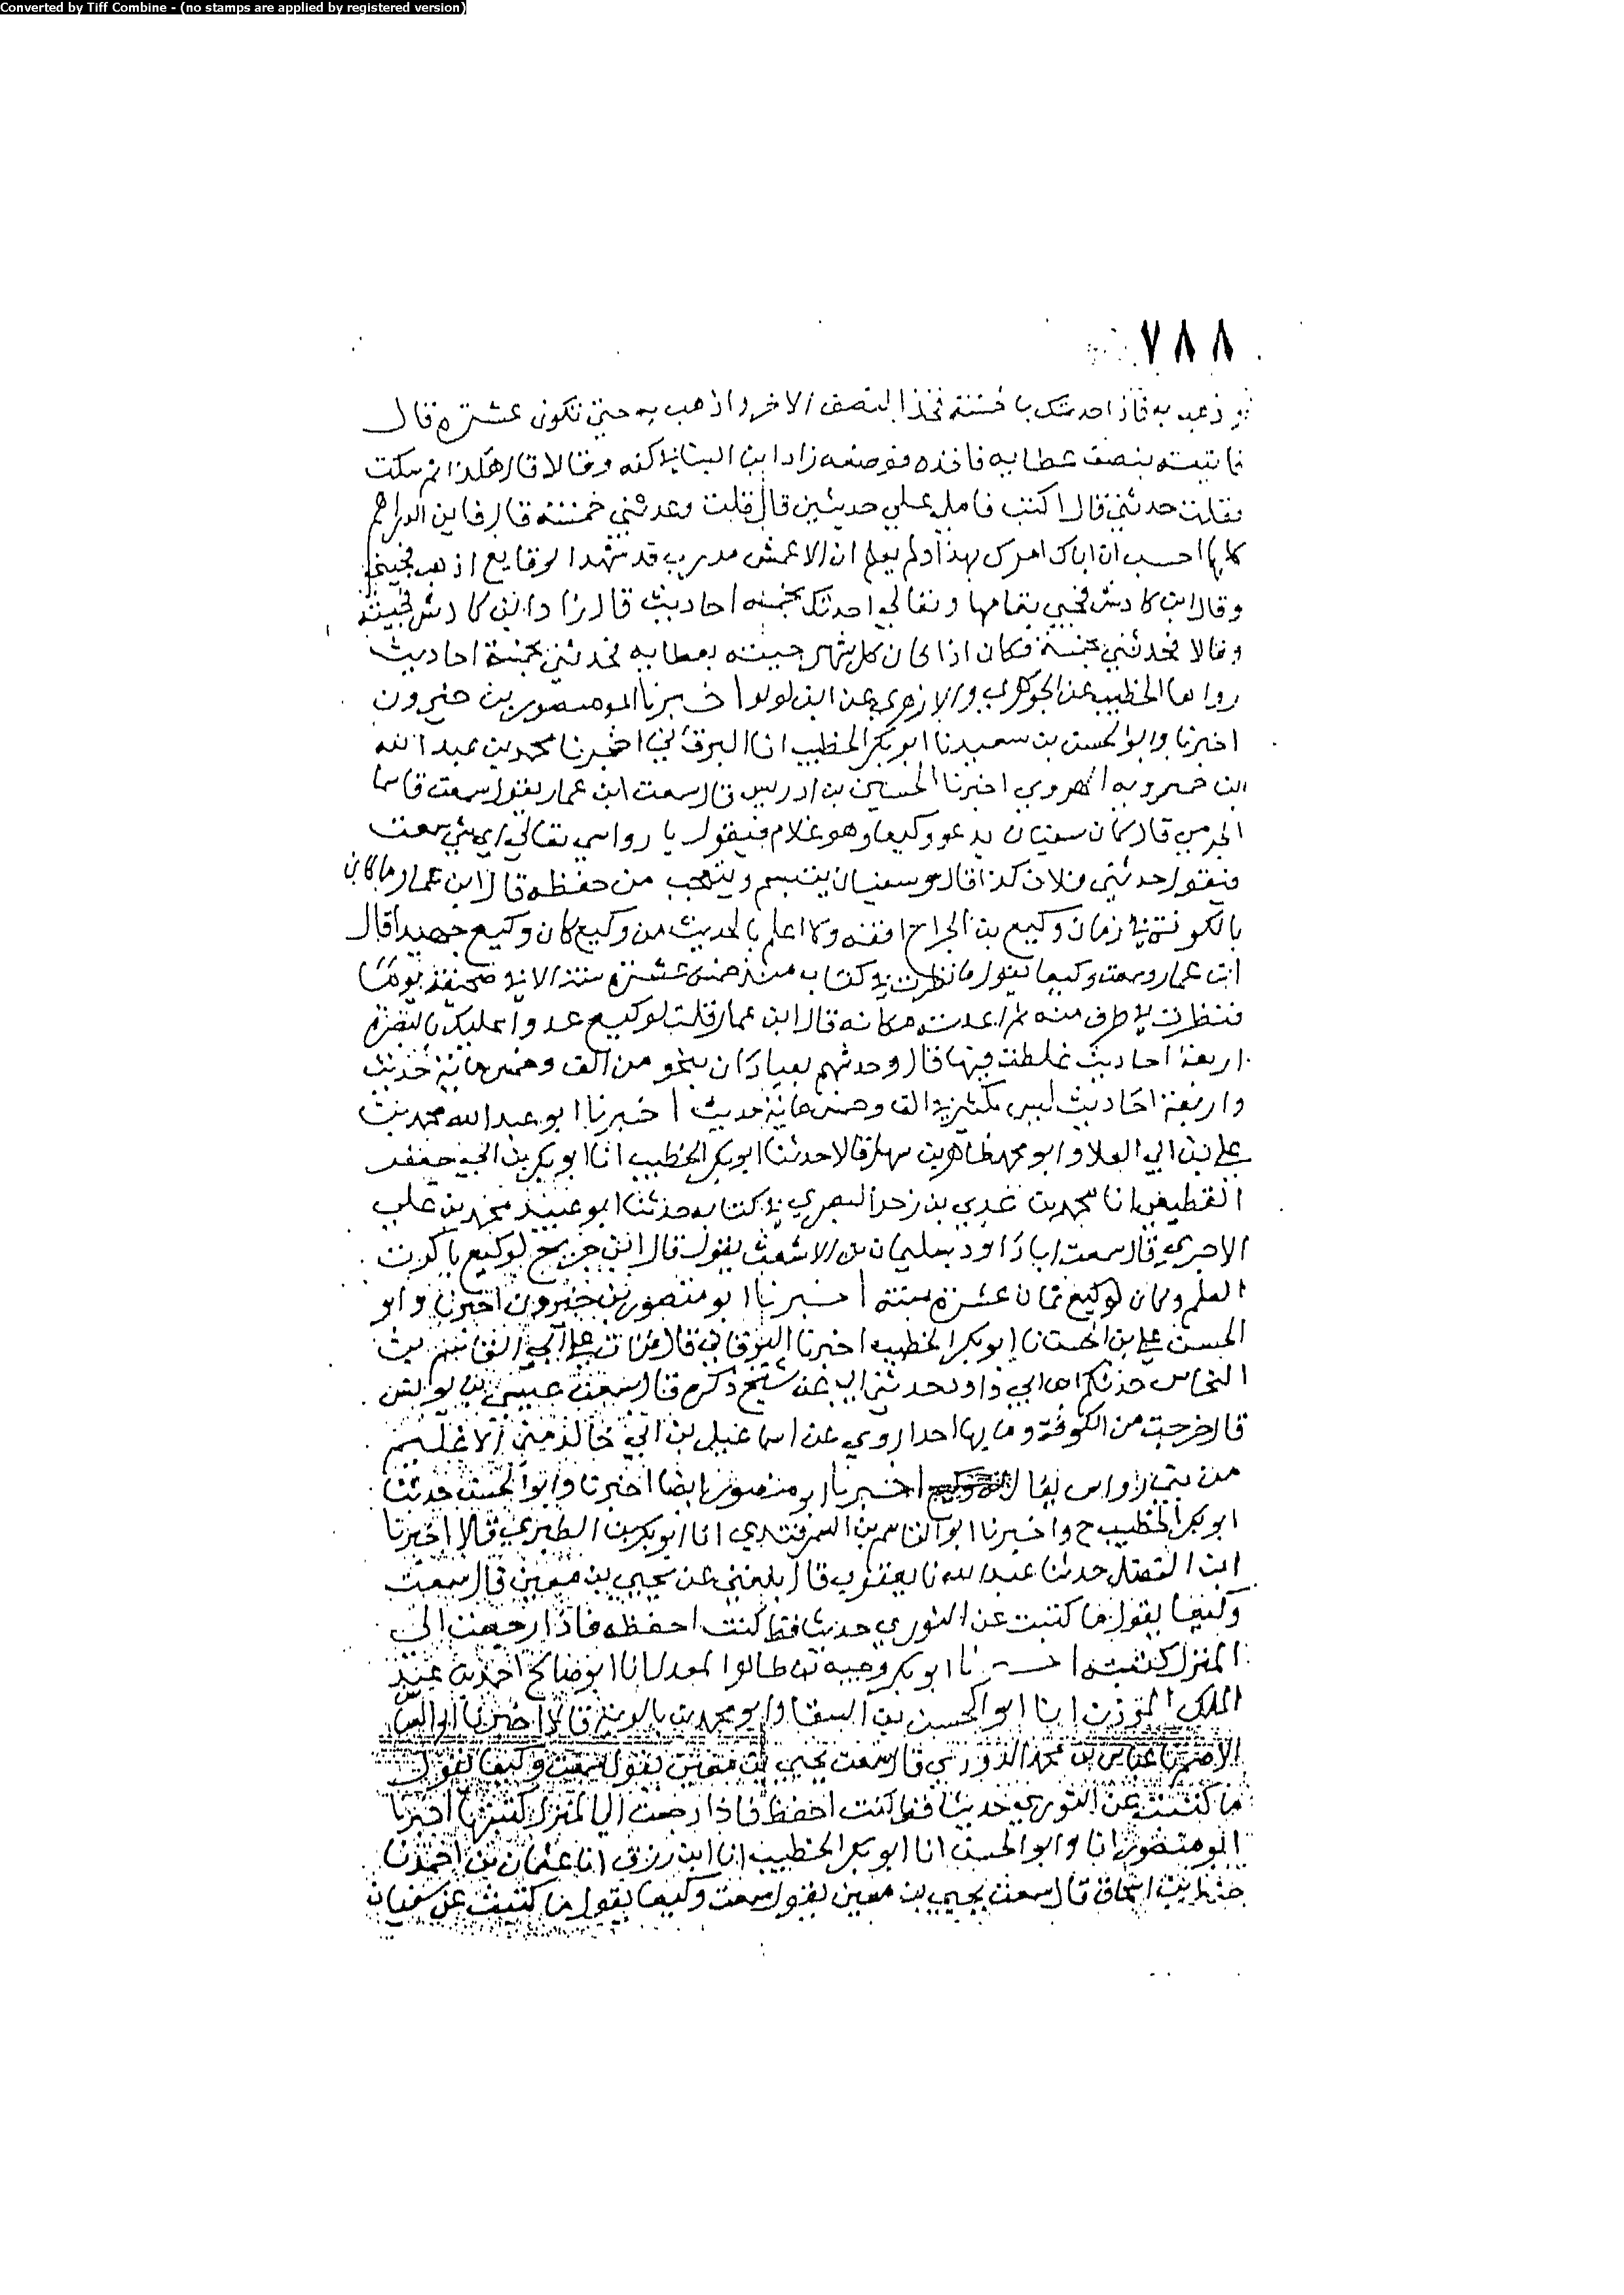 Converted by Tiff Combine - (no stamps are applied by registered version)
٧٨٨
اذهب به فاذا حدثتك بالخمسة فخذ النصف الاخر واذهب به حتى تكون عشرة قال
فاتيته بنصف عطايه فاخذه فوضعه زاد ابن البنا في كفه وقالا قال هكذا ثم سكت
فقلت حدثني قال اكتب فاملى علي حديثين قال قلت وعدتني خمسة قال فاين الدراهم
كلها احسب ان اباك امرك بهذا ولم يعلم ان الاعمش مدرب قد شهد الوقايع اذهب فجيني
وقال ابن كادش فجي بتمامها وتعالى احدثك بخمسة احاديث قال زاد ابن كادش فجيته
وقالا فحدثني بخمسة فكان اذا كان كل شهر جيته بعطايه فحدثني بخمسة احاديث
رواها الخطيب عن الجوهري والازهري عن ابن لولوا خبرنا ابو منصور بن خيرون
اخبرنا وابو الحسن بن سعيد نا ابو بكر الخطيب انا البرقاني اخبرنا محمد بن عبد الله
ابن خميرويه الهروي اخبرنا الحسين بن ادريس قال سمعت ابن عمار يقول سمعت قاسما
الجرمي قال كان سفيان يدعو وكيعا وهو غلام فيقول يا رواسي تعالى اي شي سمعت
فيقول حدثني فلان كذا قال وسفيان يتبسم ويتعجب من حفظه قال ابن عمار ما كان
بالكوفة في زمان وكيع بن الجراح افقه ولا اعلم بالحديث من وكيع كان وكيع جهبذا قال
ابن عمار وسمعت وكيعا يقول ما نظرت في كتاب منذ خمس عشرة سنة الا في صحيفة يوما
فنظرت في طرف منه ثم اعدت مكانه قال ابن عمار قلت لوكيع عدوا عليك بالبصرة
اربعة احاديث غلطت فيها قال وحدثتهم بعبادان بنحو من الف وخمس ماية حديث
واربعة احاديث ليس بكثير في الف وخمس ماية حديث اخبرنا ابو عبد الله محمد بن
علي بن ابي العلا وابو محمد طاهر بن سهل قالا حدثنا ابو بكر الخطيب انا ابو بكر بن ابي جعفر
القطيعي انا محمد بن عدي بن زحر البصري في كتابه حدثنا ابو عبيد محمد بن علي
الاجري قال سمعت ابا داود سليمان بن الاشعث يقول قال ابن جريج لوكيع باكرت
العلم وكان لوكيع ثمان عشرة سنة اخبرنا ابو منصور بن خيرون اخبرنا وابو
الحسن علي بن الحسن نا ابو بكر الخطيب اخبرنا البرقاني قال قرات على ابي القاسم بن
النخاس حدثكم ابن ابي داود حدثني ابي عن شيخ ذكره قال سمعت عيسى بن يونس
قال خرجت من الكوفة وما بها احد اروى عن اسماعيل بن ابي خالد مني الا غليم
من بني رواس يقال له وكيع اخبرنا ابو منصور ايضا اخبرنا وابو الحسن حدثنا
ابو بكر الخطيب ح واخبرنا ابو القاسم بن السمرقندي انا ابو بكر بن الطبري قالا اخبرنا
ابن الفضل حدثنا عبد الله نا يعقوب قال بلغني عن يحيى بن معين قال سمعت
وكيعا يقول ما كتبت عن الثوري حديثا قط كنت احفظه فاذا رجعت الى
المنزل كتبته اخبرنا ابو بكر وجيه بن طاهر المعدل انا ابو صالح احمد بن عبد
الملك المؤذن انا ابو الحسن بن السقا وابو محمد بن بالويه قالا اخبرنا ابو العباس
الاصم نا عباس بن محمد الدوري قال سمعت يحيى بن معين يقول سمعت وكيعا يقول
ما كتبت عن الثوري حديثا قط كنت احفظ فاذا رجعت الى المنزل كتبتها اخبرنا
ابو منصور انا وابو الحسن انا ابو بكر الخطيب انا ابن رزق انا عثمان بن احمد نا
حنبل بن اسحاق قال سمعت يحيى بن معين يقول سمعت وكيعا يقول ما كتبت عن سفيان